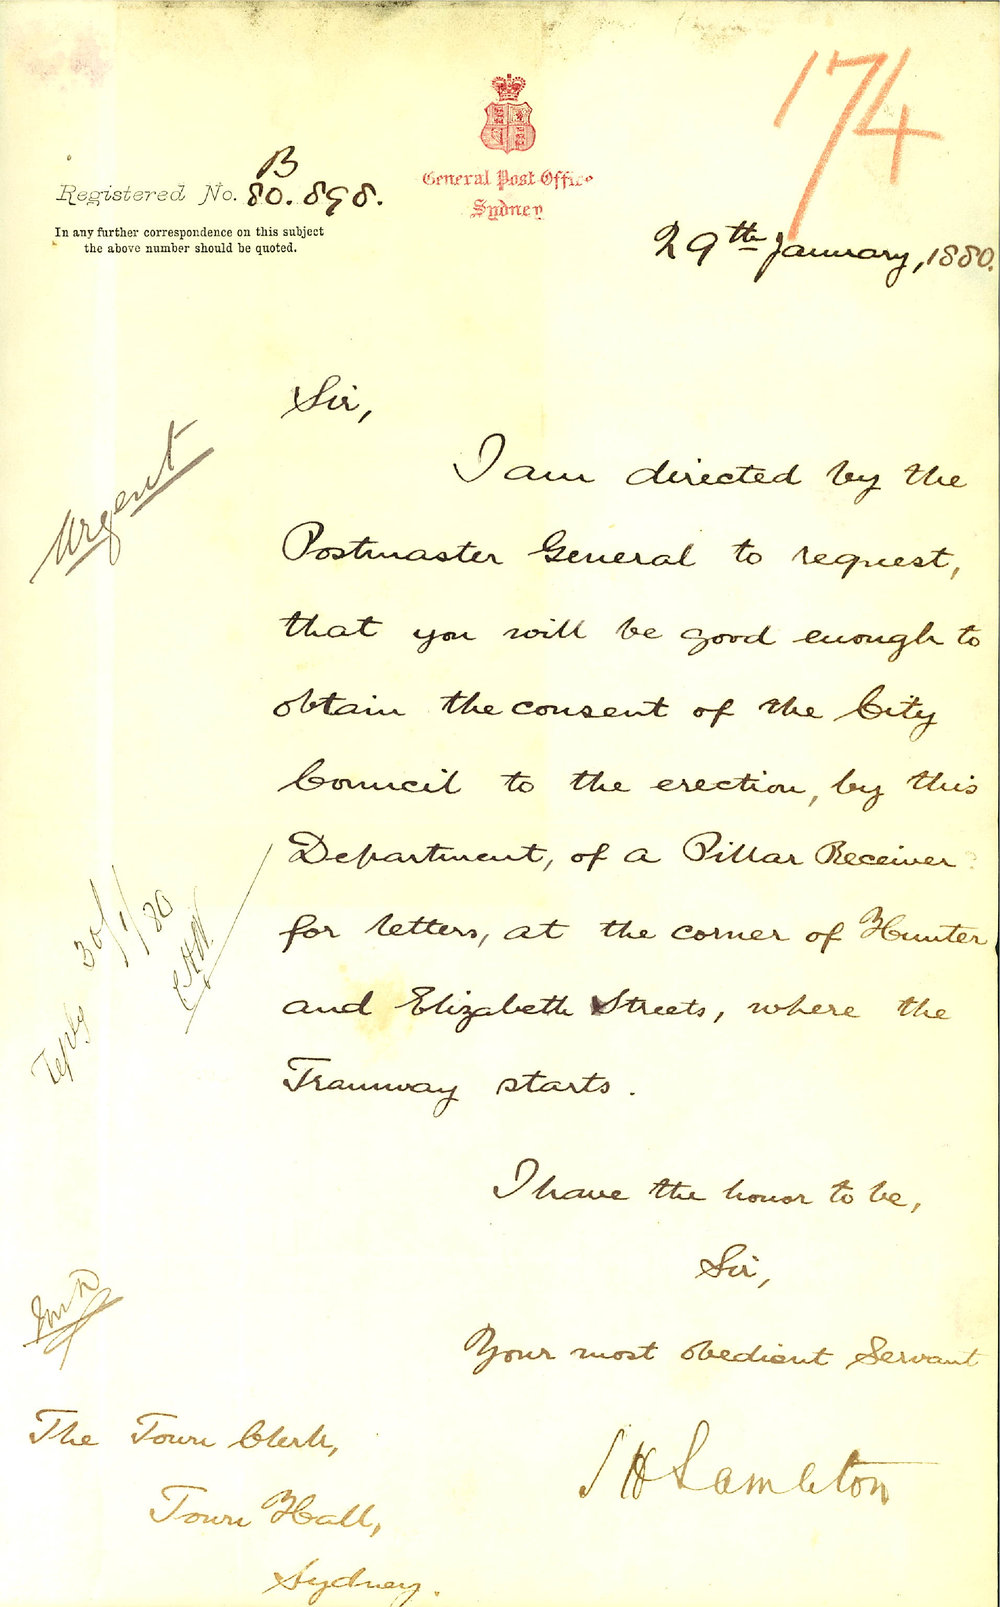 174
General Post Office
Sydney
B
Registered No. 80.898.
In any further correspondence on this subject
the above number should be quoted.
29th January, 1880.
Sir,
Urgent
I am directed by the
Postmaster General to request,
that you will be good enough to
obtain the consent of the City
Council to the erection, by this
Department, of a Pillar Receiver
for letters, at the corner of Hunter
and Elizabeth Streets, where the
Tramway starts.
Reply 30/1/80
I have the honor to be,
Sir,
Your most obedient Servant
S H Lambton
The Town Clerk,
Town Hall,
Sydney.